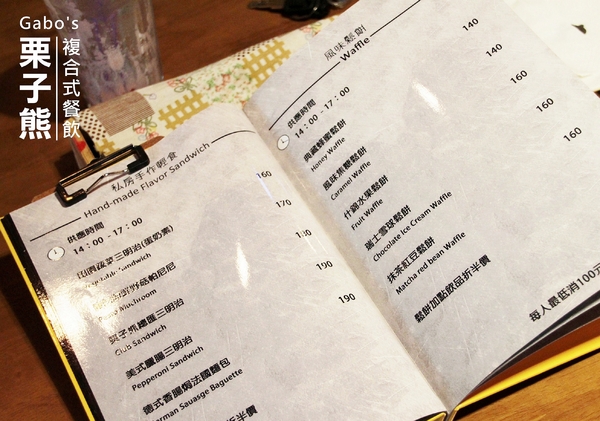 Gabo's
栗子熊
複合式餐飲
私房手作輕食
Hand-made Flavor Sandwich
供應時間
14:00-17:00
160
Sandwich
170
Mushroom
Club Sandwich
190
美式臘腸三明治
Pepperoni Sandwich
190
德式香腸焗法國麵包
German Sausage Baguette
折半價
風味鬆餅
Waffle
供應時間
14:00-17:00
典藏蜂蜜鬆餅
140
Honey Waffle
風味焦糖鬆餅
140
Caramel Waffle
什錦水果鬆餅
160
Fruit Waffle
瑞士雪球鬆餅
160
Chocolate Ice Cream Waffle
抹茶紅豆鬆餅
160
Matcha red bean Waffle
鬆餅加點飲品折半價
每人最低消100元